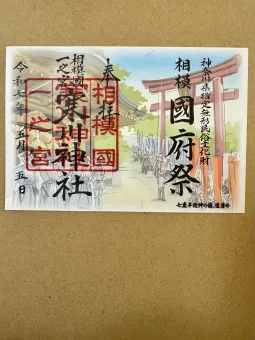 神奈川県指定無形民俗文化財
相模 國府祭
奉拝
相模國
一之宮
寒川神社
相模國
一之宮
令和七年 五月 五日
七度半迎神の儀